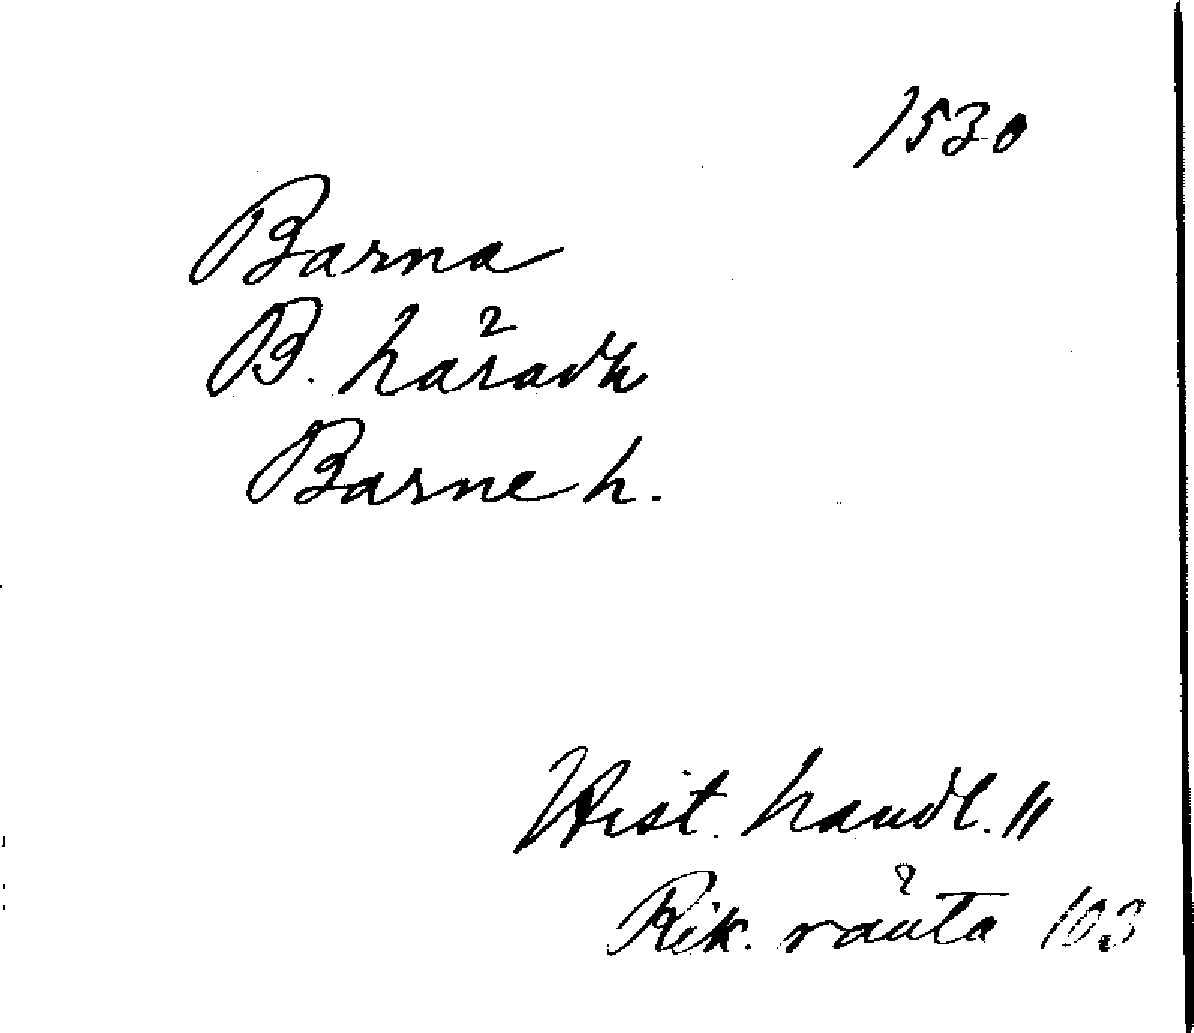 1530
Barna
B. häradh
Barne h.
Hist. handl. 11
Rik. ränta 103